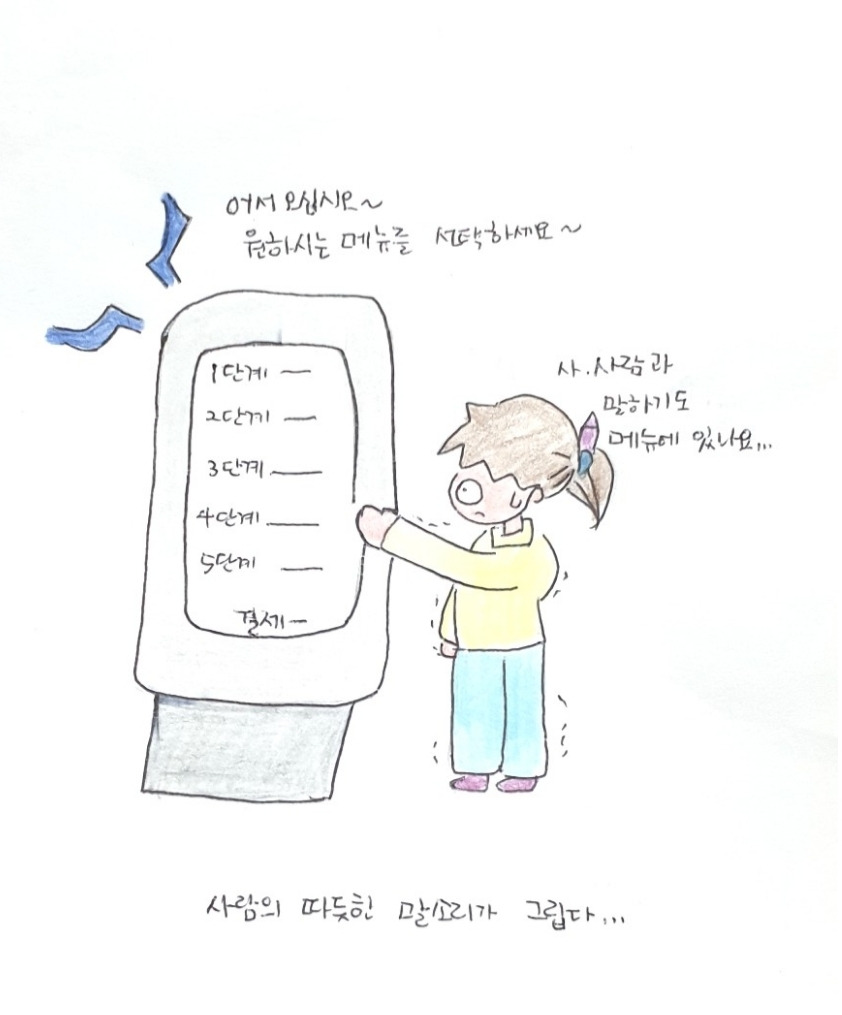 어서 오십시오~
원하시는 메뉴를 선택하세요~
1단계 —
2단계 —
3단계 —
4단계 —
5단계 —
결제 —
사.사람과
말하기도
메뉴에 있나요...
사람의 따듯한 말소리가 그립다...